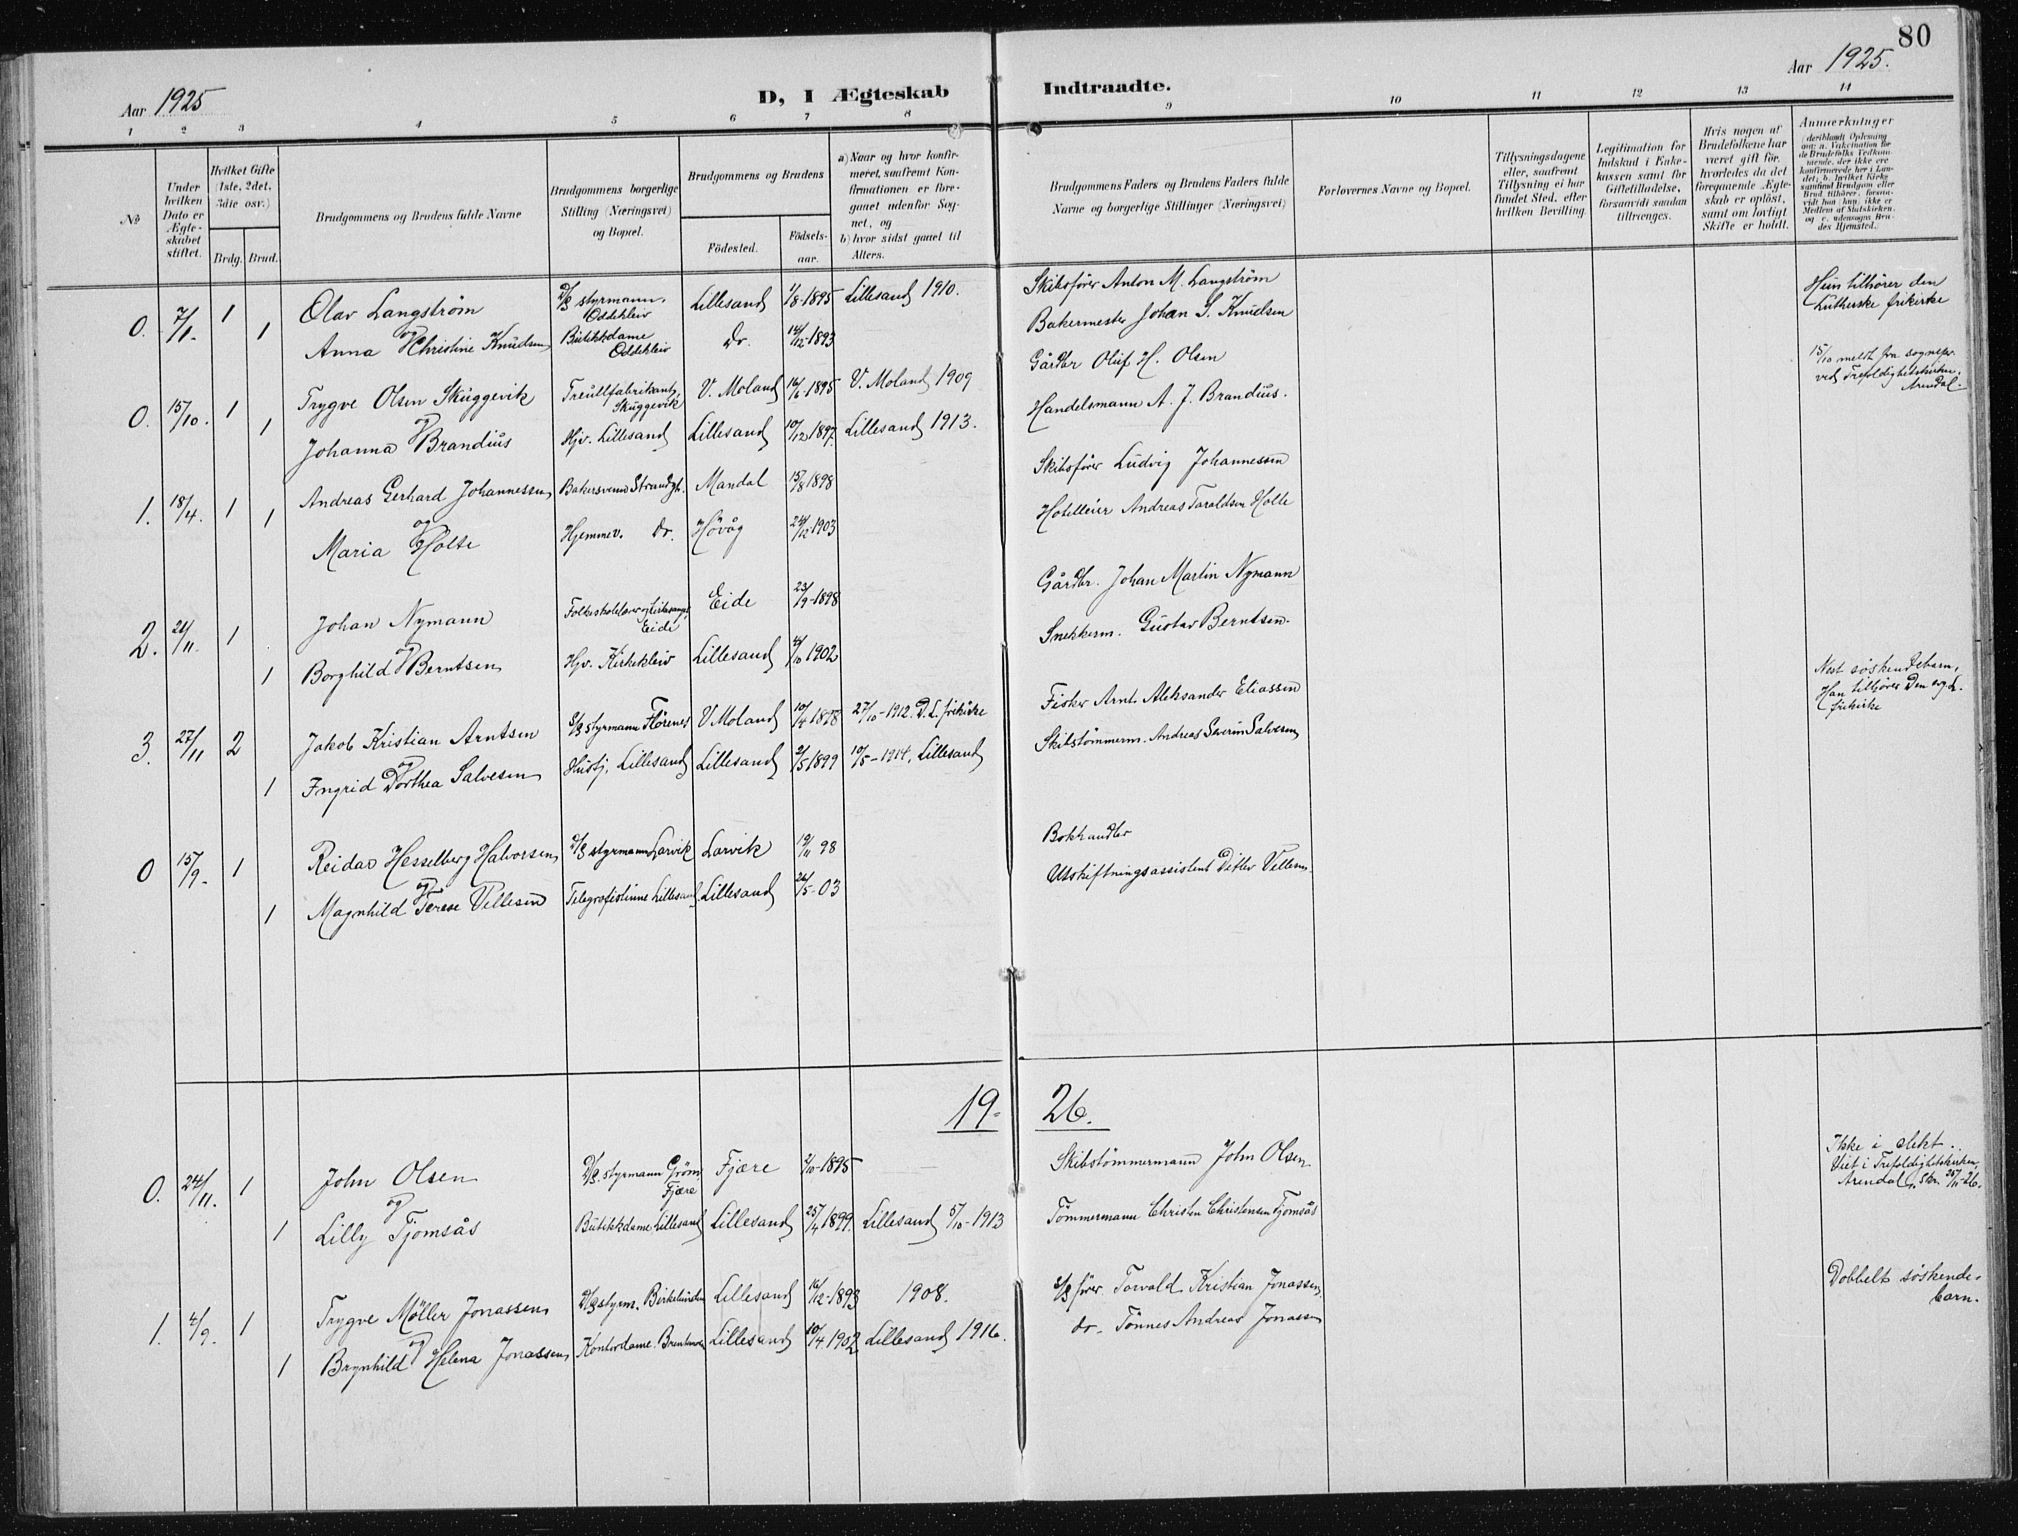 80
Aar 1925
D, I Ægteskab Indtraadte.
Aar 1925.
1 2 3 4 5 6 7 8 9 10 11 12 13 14
No
Under hvilken Dato er Ægteskabet stiftet.
Hvilket Gifte (1ste, 2det, 3die osv.)
Brdg. Brud.
Brudgommens og Brudens fulde Navne
Brudgommens borgerlige Stilling (Næringsvei) og Bopæl.
Brudgommens og Brudens
Födested. Födselsaar.
a) Naar og hvor konfirmeret, saafremt Konfirmationen er foregaaet udenfor Sognet, og
b) hvor sidst gaaet til Alters.
Brudgommens Faders og Brudens Faders fulde Navne og borgerlige Stillinger (Næringsvei)
Forlovernes Navne og Bopæl.
Tillysningsdagene eller, saafremt Tillysning ei har fundet Sted, efter hvilken Bevilling.
Legitimation for Indskud i Enkekassen samt for Giftetilladelse, forsaavidt saadan tiltrænges.
Hvis nogen af Brudefolkene har været gift før, hvorledes da det foregaaende Ægteskab er oplöst, samt om lovligt Skifte er holdt.
Anmærkninger (deriblandt Oplysning om: a. Vakcination for de Brudefolks Vedkommende, der ikke ere konfirmerede her i Landet; b. hvilket Kirkesamfund Brudgom eller Brud tilhører, forsaavidt han (hun) ikke er Medlem af Statskirken, og c. udensogns Brudes Hjemsted.)
0. 7/1. 1 Olav Langström D/S styrmann, Oddekleiv Lillesand 1/8-1895 Lillesand 1910. Skibsfører Anton M. Langström Hun tilhører den Lutherske frikirke
og
1 Anna Christine Knudsen Butikkdame Oddekleiv do. 14/12 1893 Bakermester Johan S. Knudsen
0. 15/10. 1 Trygve Olsen Skuggevik Treullfabrikant, Skuggevik V. Moland 16/6 1895 V. Moland 1909 Gårdbr Oluf H. Olsen 15/10 meldt fra sognepr. ved Trefoldighetskirken, Arendal.
og
1 Johanna Brandius Hjv. Lillesand Lillesand 10/12 1897. Lillesand 1913. Handelsmann A. J. Brandius.
1. 18/4. 1 Andreas Gerhard Johannessen Bakersvend Strandgt. Mandal 15/8 1898 Skibsfører Ludvig Johannessen
og
1 Maria Holte Hjemmev. do. Høvåg 24/12 1903 Hotelleier Andreas Taraldsen Holte
2. 21/11. 1 Johan Nymann Eide Eide 23/9-1898 Gårdbr. Johan Martin Nymann
og
1 Borghild Berntsen Hjv. Kirkekleiv Lillesand 4/10 1902 Snekkerm. Gustav Berntsen.
3. 27/11 2 Jakob Kristian Arntsen S/S styrmann Florenes V. Moland 10/4 1878 27/10-1912. D. L. frikirke Fisker Arnt Aleksander Eliassen Nest søskendebarn, Han tilhører Den evg. L. frikirke
og
1 Ingrid Dorthea Salvesen Hustj. Lillesand Lillesand 2/5 1899 10/5-1914, Lillesand Skibstömmerm. Andreas Severin Salvesen
0 15/9. 1 Reidar Hesselberg Halvorsen D/S styrmann Larvik Larvik 19/11 98 Bokhandler
og
1 Magnhild Terese Vellesen Telegrafistinne Lillesand Lillesand 26/5-03 Utskiftningsassistent Ditlev Vellesen
19- 26.
0. 24/11. 1 John Olsen D/S styrmann Gröm, Fjære Fjære 2/10-1895 Skibstömmermann John Olsen Ikke i slekt. Viet i Trefoldighetskirken, Arendal, skr. 25/11-26.
og
1 Lilly Tjomsås Butikkdame, Lillesand Lillesand 25/4 1899. Lillesand 5/10-1913 Tömmermann Christen Christensen Tjomsås
1. 4/9. 1 Trygve Möller Jonassen D/S styrm. Birkelunden Lillesand 16/12-1893 1908. S/S fører Torvald Kristian Jonassen, Dobbelt søskendebarn.
og
1 Brynhild Helena Jonassen Kontordame. Lillesand 10/4 1902 Lillesand 1916. do. Tönnes Andreas Jonassen